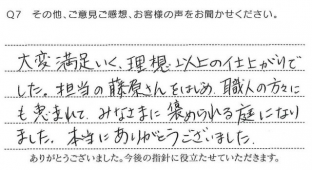 Q7 その他、ご意見ご感想、お客様の声をお聞かせください。
大変満足いく、理想以上の仕上がりで
した。担当の藤原さんをはじめ、職人の方々に
も恵まれて、みなさまに褒められる庭になり
ました。本当にありがとうございました。
ありがとうございました。今後の指針に役立たせていただきます。